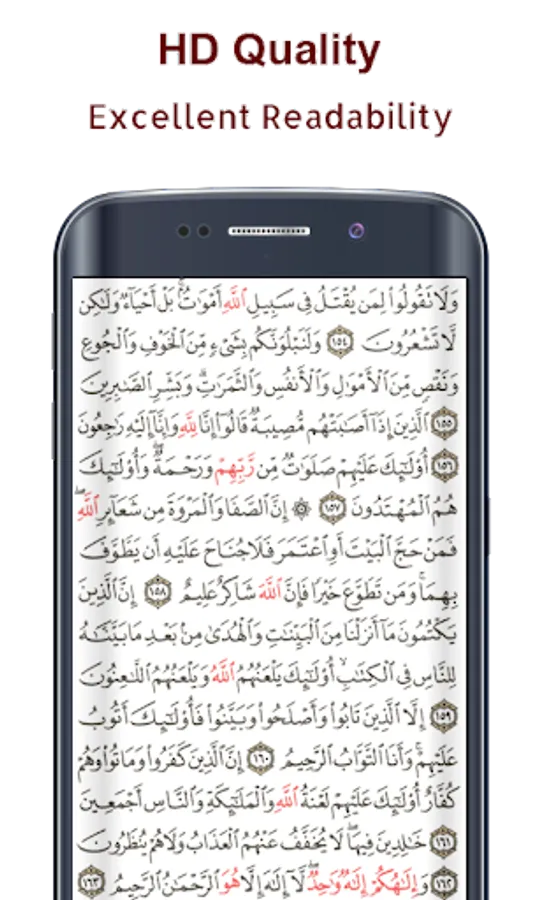 HD Quality
Excellent Readability
وَلَا تَقُولُوا۟ لِمَن يُقْتَلُ فِى سَبِيلِ ٱللَّهِ أَمْوَٰتٌۢ ۚ بَلْ أَحْيَآءٌ وَلَـٰكِن
لَّا تَشْعُرُونَ ١٥٤ وَلَنَبْلُوَنَّكُم بِشَىْءٍ مِّنَ ٱلْخَوْفِ وَٱلْجُوعِ
وَنَقْصٍ مِّنَ ٱلْأَمْوَٰلِ وَٱلْأَنفُسِ وَٱلثَّمَرَٰتِ ۗ وَبَشِّرِ ٱلصَّـٰبِرِينَ
١٥٥ ٱلَّذِينَ إِذَآ أَصَـٰبَتْهُم مُّصِيبَةٌ قَالُوٓا۟ إِنَّا لِلَّهِ وَإِنَّآ إِلَيْهِ رَٰجِعُونَ
١٥٦ أُو۟لَـٰٓئِكَ عَلَيْهِمْ صَلَوَٰتٌ مِّن رَّبِّهِمْ وَرَحْمَةٌ ۖ وَأُو۟لَـٰٓئِكَ
هُمُ ٱلْمُهْتَدُونَ ١٥٧ ۞ إِنَّ ٱلصَّفَا وَٱلْمَرْوَةَ مِن شَعَآئِرِ ٱللَّهِ ۖ
فَمَنْ حَجَّ ٱلْبَيْتَ أَوِ ٱعْتَمَرَ فَلَا جُنَاحَ عَلَيْهِ أَن يَطَّوَّفَ
بِهِمَا ۚ وَمَن تَطَوَّعَ خَيْرًا فَإِنَّ ٱللَّهَ شَاكِرٌ عَلِيمٌ ١٥٨ إِنَّ ٱلَّذِينَ
يَكْتُمُونَ مَآ أَنزَلْنَا مِنَ ٱلْبَيِّنَـٰتِ وَٱلْهُدَىٰ مِنۢ بَعْدِ مَا بَيَّنَّـٰهُ
لِلنَّاسِ فِى ٱلْكِتَـٰبِ ۙ أُو۟لَـٰٓئِكَ يَلْعَنُهُمُ ٱللَّهُ وَيَلْعَنُهُمُ ٱللَّـٰعِنُونَ
١٥٩ إِلَّا ٱلَّذِينَ تَابُوا۟ وَأَصْلَحُوا۟ وَبَيَّنُوا۟ فَأُو۟لَـٰٓئِكَ أَتُوبُ
عَلَيْهِمْ ۚ وَأَنَا ٱلتَّوَّابُ ٱلرَّحِيمُ ١٦٠ إِنَّ ٱلَّذِينَ كَفَرُوا۟ وَمَاتُوا۟ وَهُمْ
كُفَّارٌ أُو۟لَـٰٓئِكَ عَلَيْهِمْ لَعْنَةُ ٱللَّهِ وَٱلْمَلَـٰٓئِكَةِ وَٱلنَّاسِ أَجْمَعِينَ
١٦١ خَـٰلِدِينَ فِيهَا ۖ لَا يُخَفَّفُ عَنْهُمُ ٱلْعَذَابُ وَلَا هُمْ يُنظَرُونَ
١٦٢ وَإِلَـٰهُكُمْ إِلَـٰهٌ وَٰحِدٌ ۖ لَّآ إِلَـٰهَ إِلَّا هُوَ ٱلرَّحْمَـٰنُ ٱلرَّحِيمُ ١٦٣